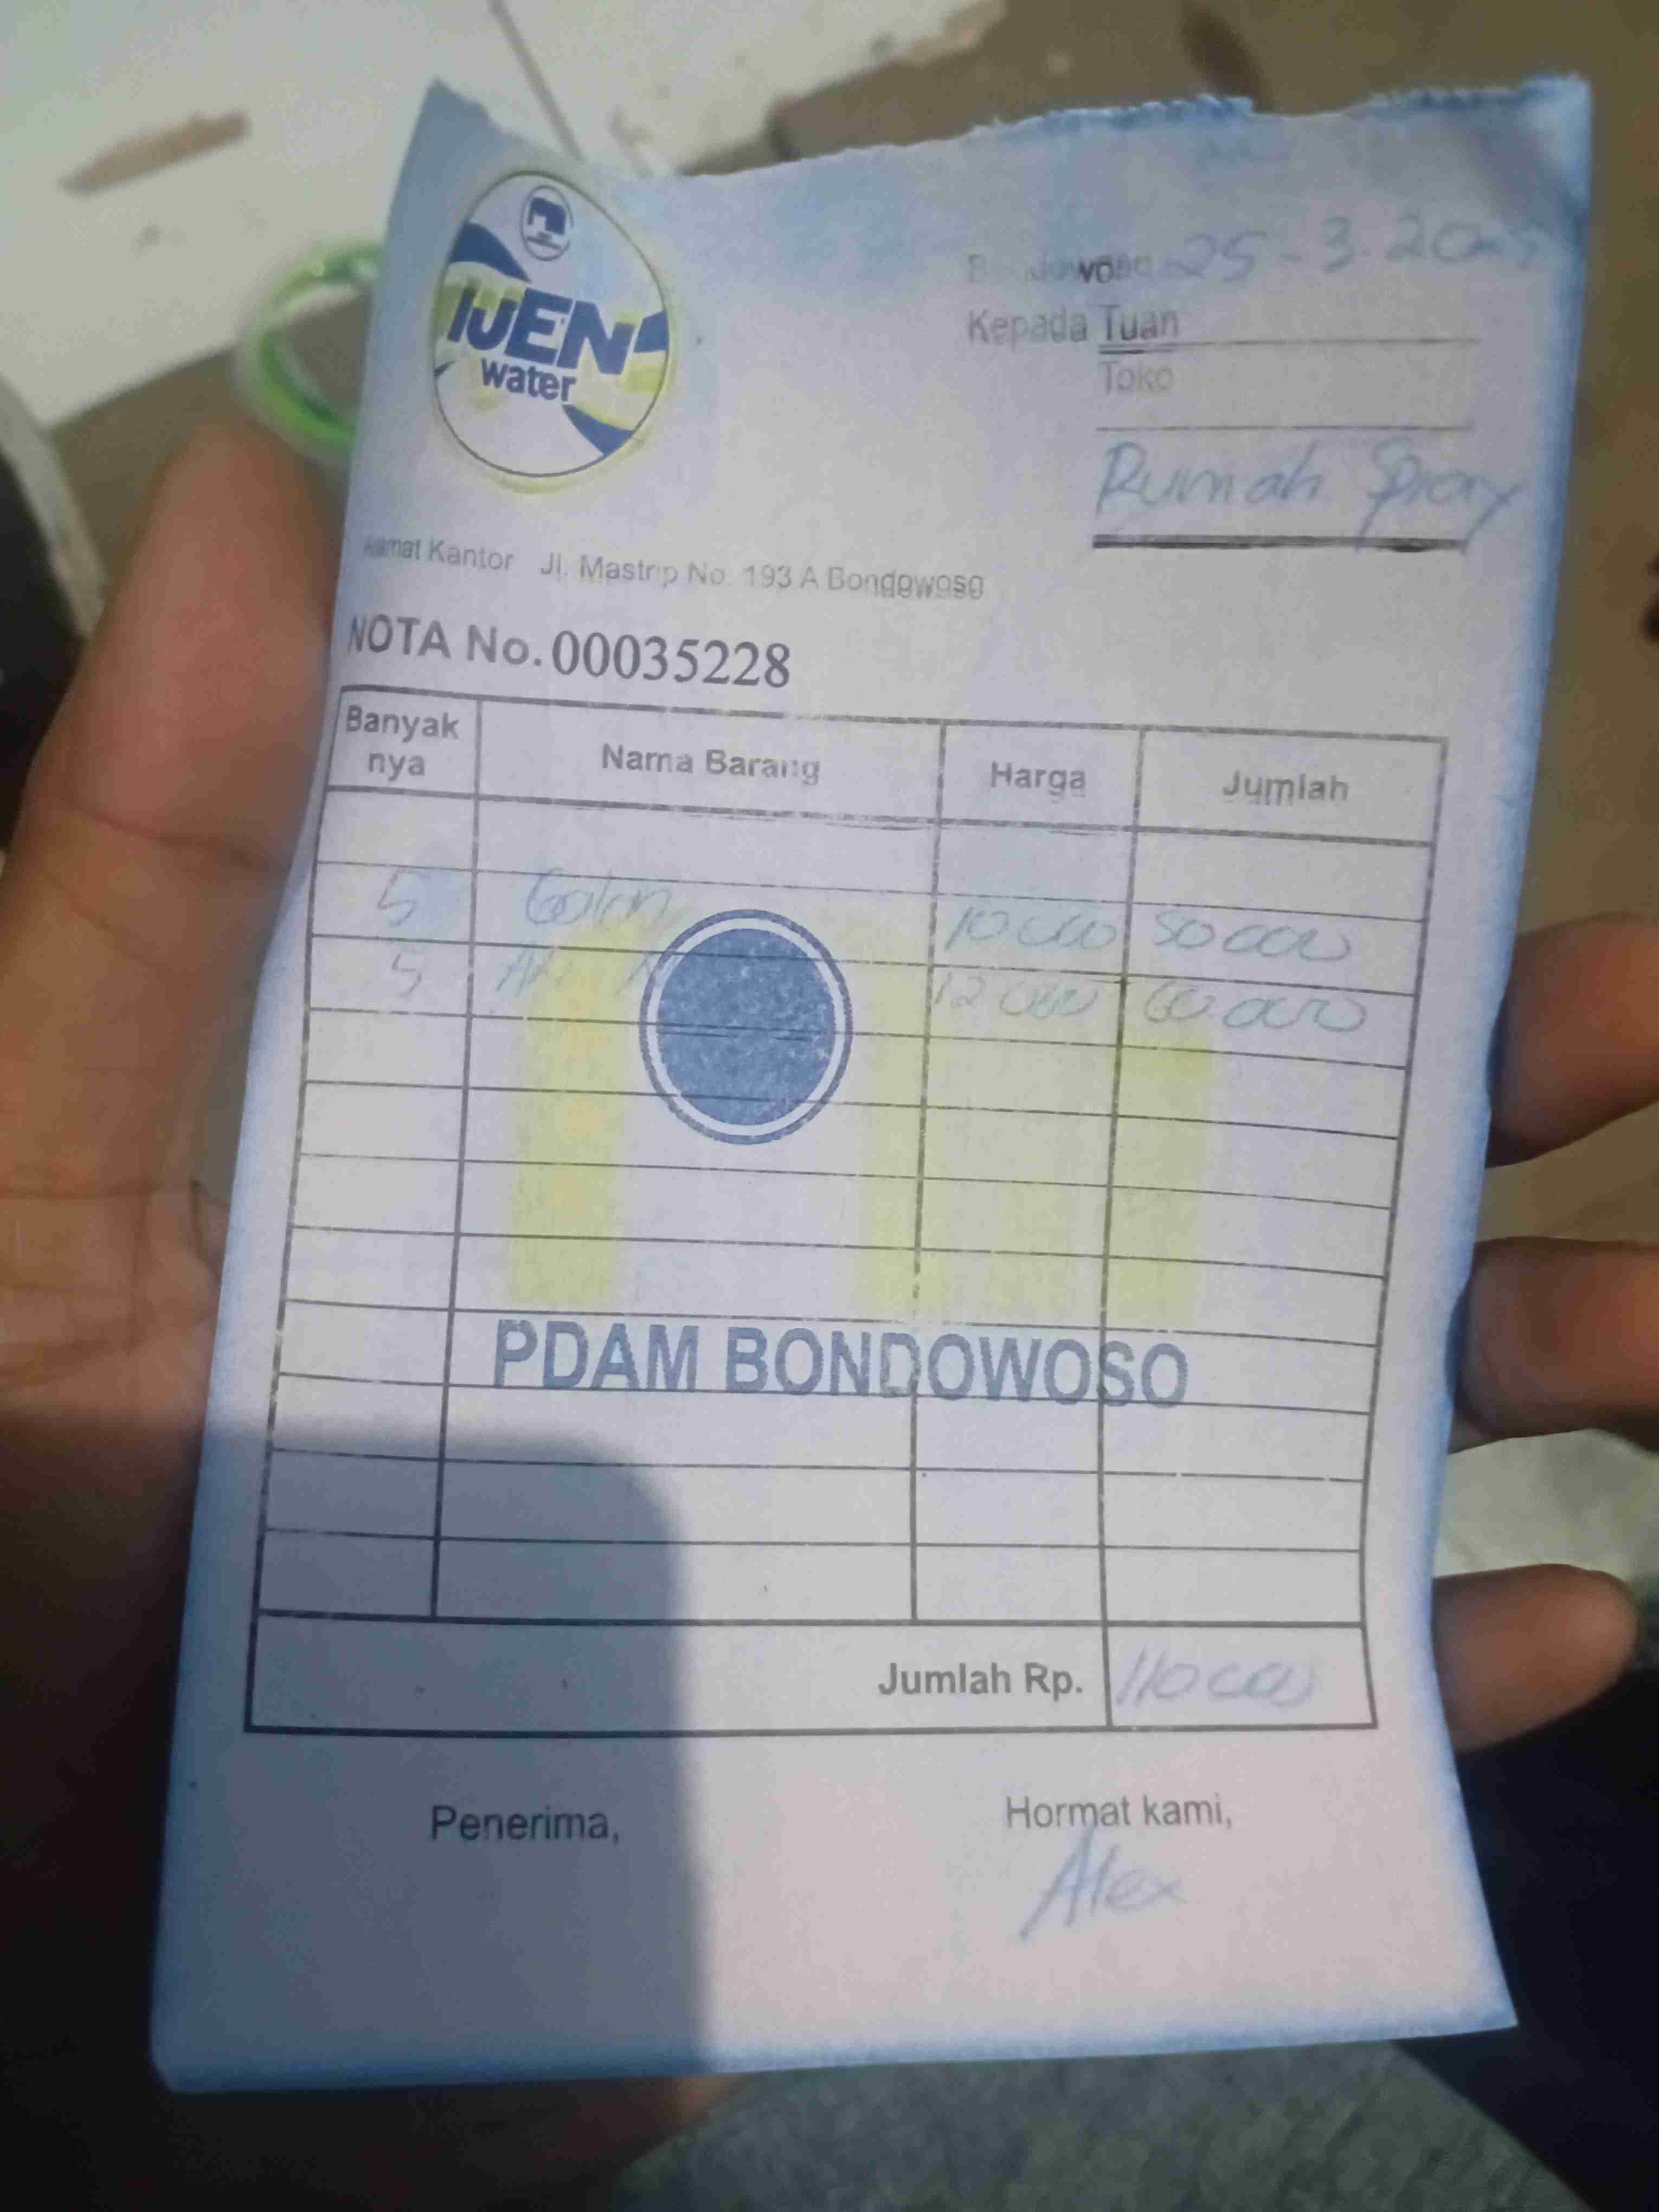 IJEN
water
Bondowoso 25-3-2025
Kepada Tuan
Toko
Rumah
Alamat Kantor Jl. Mastrip No. 193 A Bondowoso
NOTA No. 00035228
Banyak nya Nama Barang Harga Jumlah
5 Galon 10 000 50 000
5 12 000 60.000
PDAM BONDOWOSO
Jumlah Rp. 110 000
Penerima, Hormat kami,
Alex